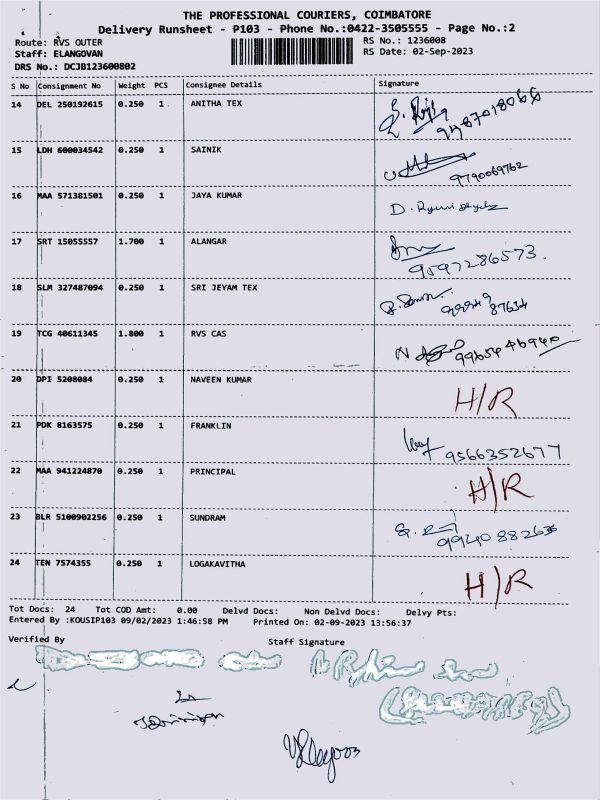 THE PROFESSIONAL COURIERS, COIMBATORE
Delivery Runsheet - P103 - Phone No.:0422-3505555 - Page No.:2
Route: RVS OUTER RS No.: 1236008
Staff: ELANGOVAN RS Date: 02-Sep-2023
DRS No.: DCJB123600802
S No Consignment No Weight PCS Consignee Details Signature
14 DEL 250192615 0.250 1 ANITHA TEX
15 LDH 600034542 0.250 1 SAINIK 9790069762
16 MAA 571381501 0.250 1 JAYA KUMAR
17 SRT 15055557 1.700 1 ALANGAR 9597286573.
18 SLM 327487094 0.250 1 SRI JEYAM TEX
19 TCG 40611345 1.800 1 RVS CAS
20 DPI 5208084 0.250 1 NAVEEN KUMAR H/R
21 PDK 8163575 0.250 1 FRANKLIN 9566352677
22 MAA 941224870 0.250 1 PRINCIPAL H/R
23 BLR 5100902256 0.250 1 SUNDRAM
24 TEN 7574355 0.250 1 LOGAKAVITHA H/R
Tot Docs: 24 Tot COD Amt: 0.00 Delvd Docs: Non Delvd Docs: Delvy Pts:
Entered By :KOUSIP103 09/02/2023 1:46:58 PM Printed On: 02-09-2023 13:56:37
Verified By Staff Signature